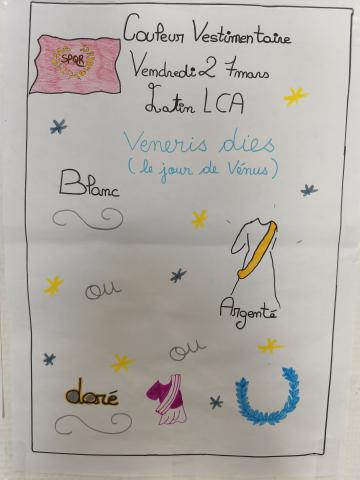 SPQR
Couleur Vestimentaire
Vendredi 27 mars
Latin LCA
Veneris dies
(le jour de Vénus)
Blanc
ou
Argenté
ou
doré